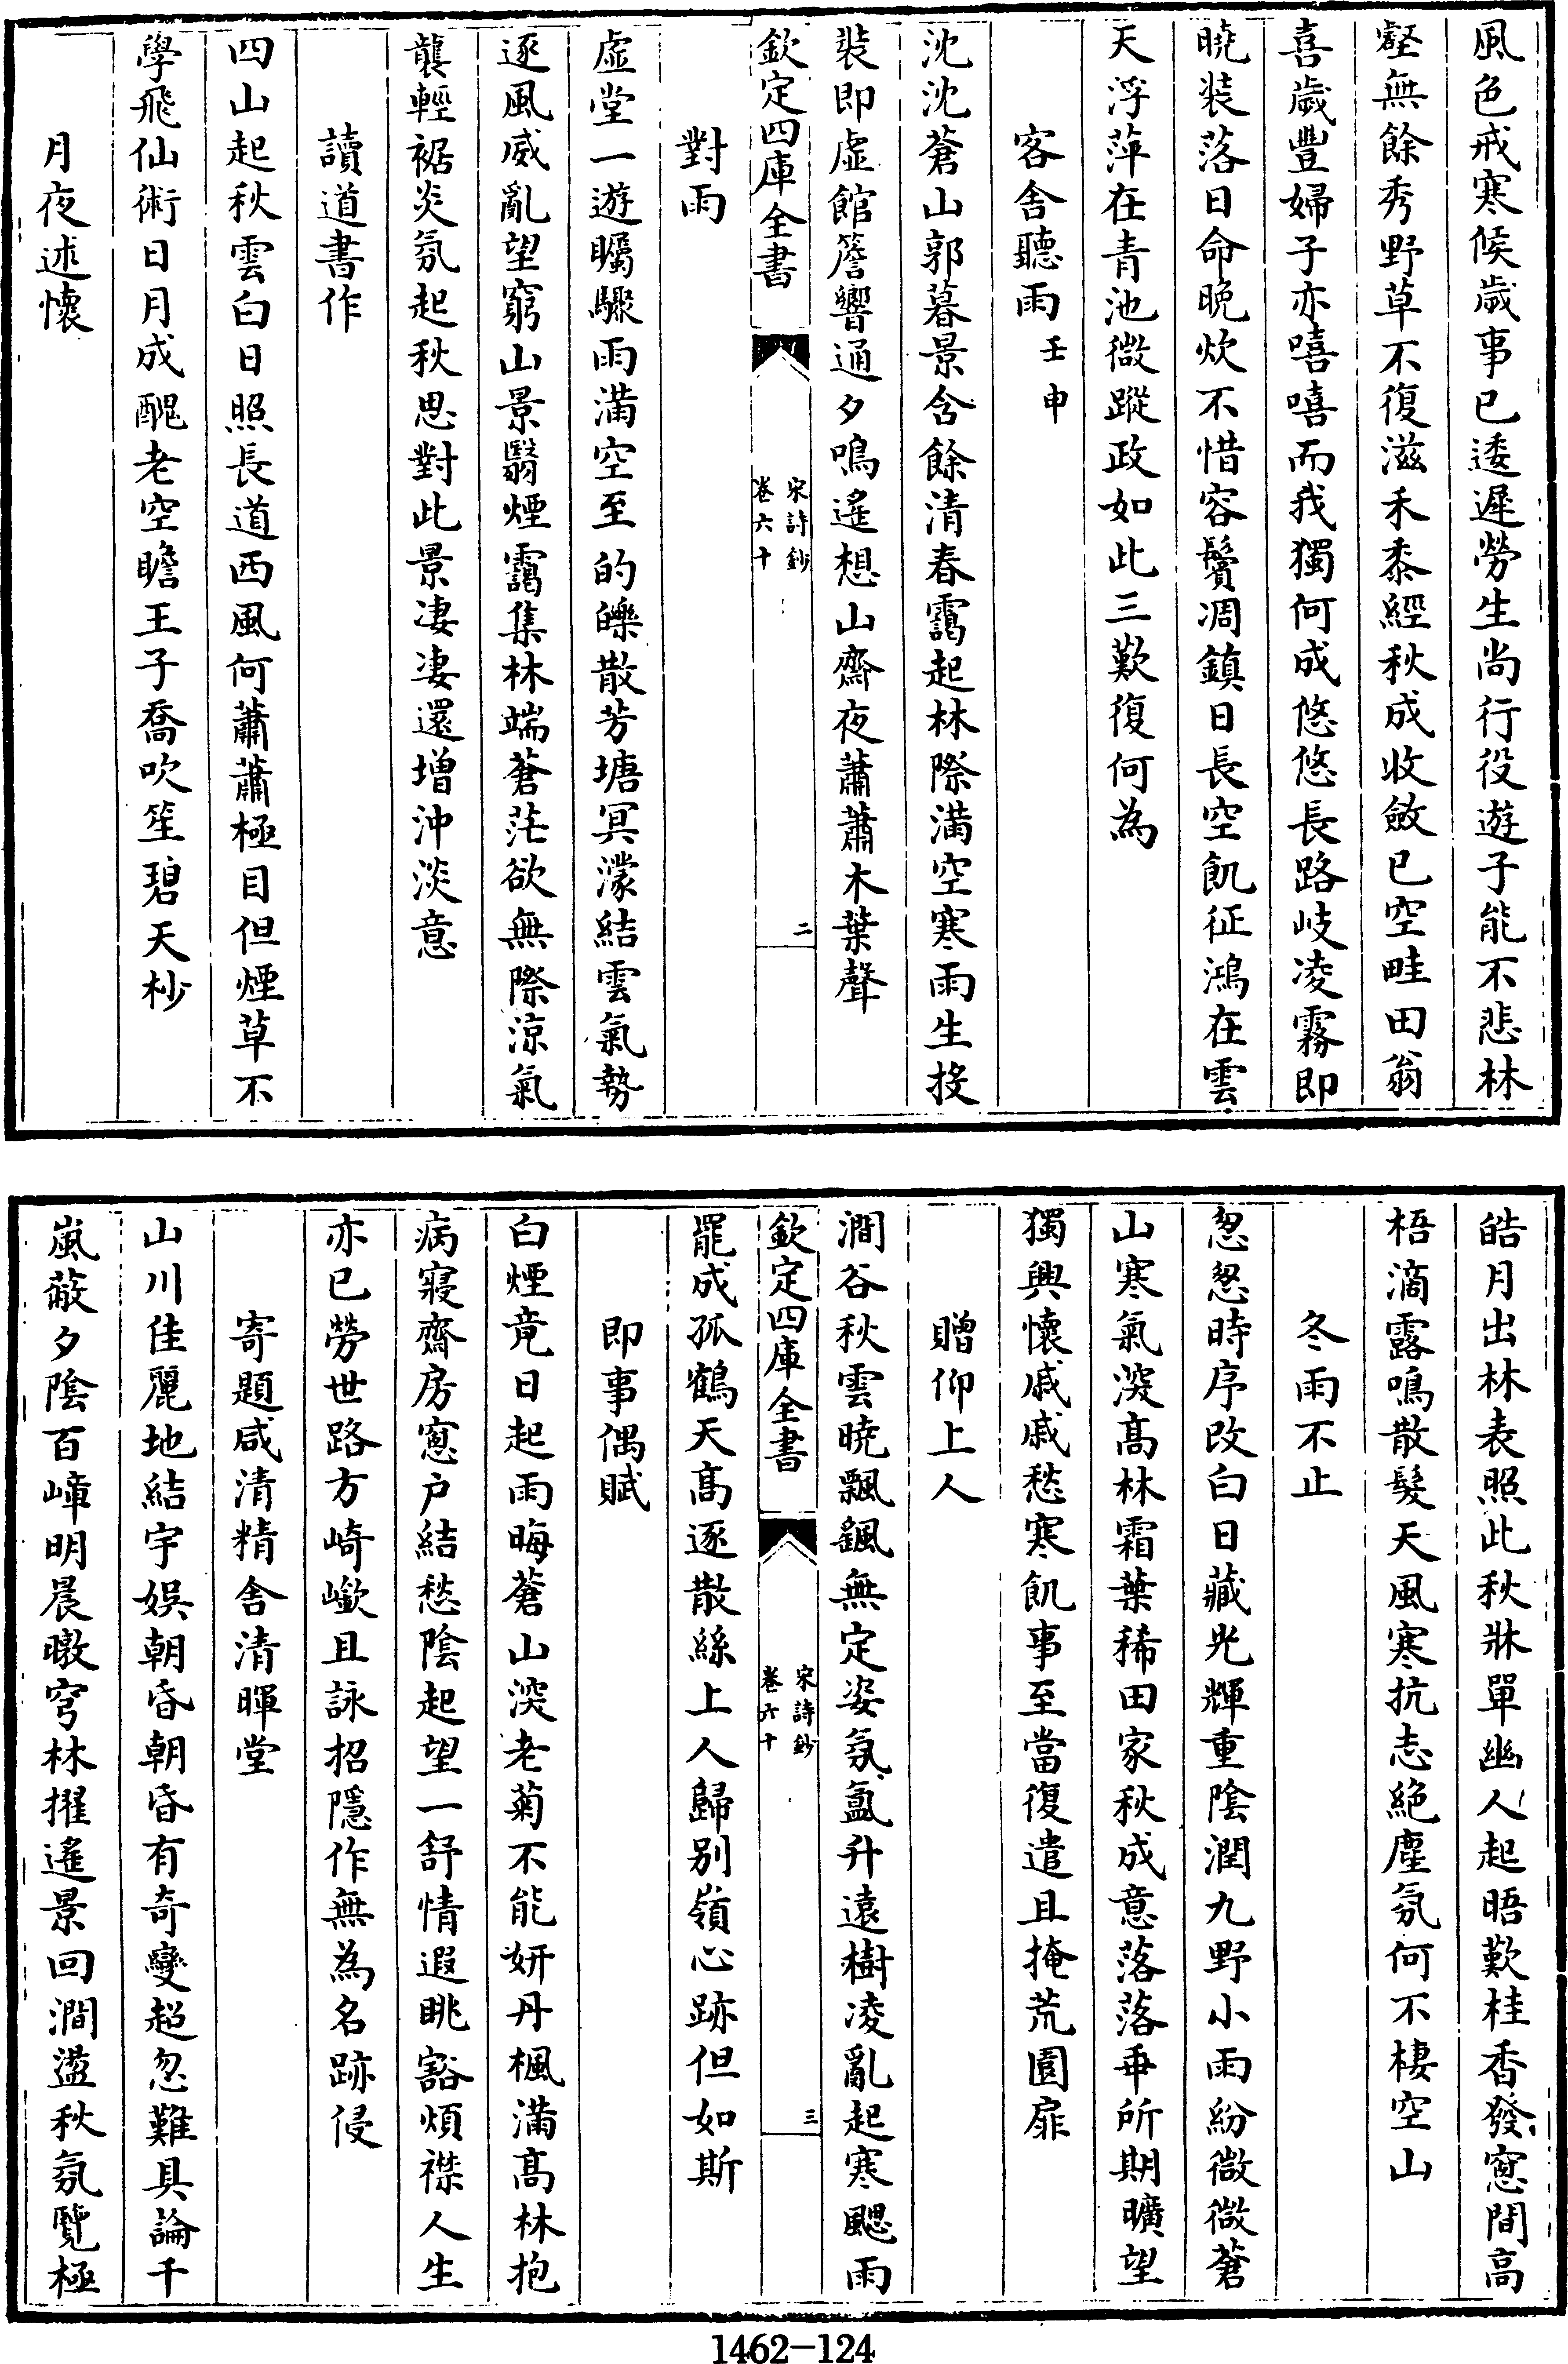 風色戒寒候歲事已逶遲勞生尚行役遊子能不悲林
壑無餘秀野草不復滋禾黍經秋成收斂已空畦田翁
喜歲豐婦子亦嘻嘻而我獨何成悠悠長路岐凌霧即
曉裝落日命晚炊不惜容鬢凋鎮日長空飢征鴻在雲
天浮萍在青池微蹤政如此三歎復何為
客舍聽雨壬申
沈沈蒼山郭暮景含餘清春靄起林際滿空寒雨生投
裝即虛館簷響通夕鳴遙想山齋夜蕭蕭木葉聲
欽定四庫全書
宋詩鈔
卷六十
二
對雨
虛堂一遊矚驟雨滿空至的皪散芳塘冥濛結雲氣勢
逐風威亂望窮山景翳煙靄集林端蒼茫欲無際涼氣
襲輕裾炎氛起秋思對此景凄凄還增沖淡意
讀道書作
四山起秋雲白日照長道西風何蕭蕭極目但煙草不
學飛仙術日月成醜老空瞻王子喬吹笙碧天杪
月夜述懷
皓月出林表照此秋牀單幽人起晤歎桂香發窻間高
梧滴露鳴散髮天風寒抗志絕塵氛何不棲空山
冬雨不止
怱怱時序改白日藏光輝重陰潤九野小雨紛微微蒼
山寒氣深高林霜葉稀田家秋成意落落乖所期曠望
獨興懷戚戚愁寒飢事至當復遣且掩荒園扉
贈仰上人
澗谷秋雲曉飄颻無定姿氛氳升遠樹凌亂起寒颸雨
罷成孤鶴天高逐散絲上人歸别嶺心跡但如斯
欽定四庫全書
宋詩鈔
卷六十
三
即事偶賦
白煙竟日起雨晦蒼山深老菊不能妍丹楓滿高林抱
病寢齋房窻户結愁陰起望一舒情遐眺豁煩襟人生
亦已勞世路方崎嶔且詠招隱作無為名跡侵
寄題咸清精舍清暉堂
山川佳麗地結宇娯朝昏朝昏有奇變超忽難具論千
嵐蔽夕陰百嶂明晨暾穹林擢遙景回澗澹秋氛覽極
1462-124